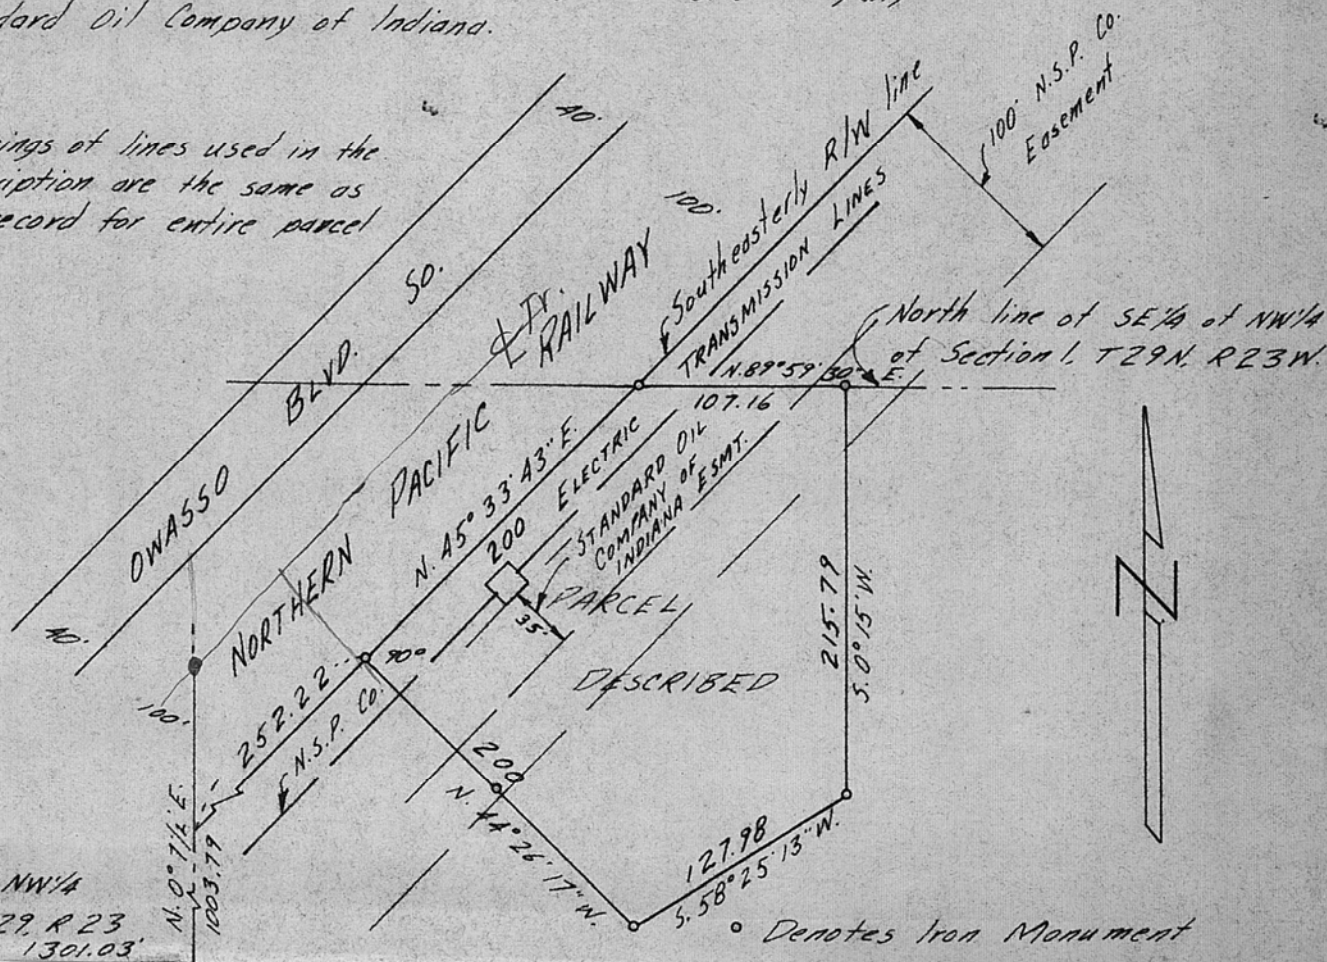 dard Oil Company of Indiana.
ings of lines used in the
ription are the same as
ecord for entire parcel
40.
100' N.S.P. Co.
Easement
Southeasterly R/W line
TRANSMISSION LINES
100.
OWASSO BLVD. SO.
40.
NORTHERN PACIFIC RAILWAY
℄ Tr.
North line of SE 1/4 of NW 1/4
of Section 1, T29N, R23W.
N. 89° 59' 30" E.
107.16
N. 45° 33' 43" E.
200
ELECTRIC
STANDARD OIL
COMPANY OF
INDIANA ESMT.
35'
PARCEL
DESCRIBED
215.79
S. 0° 15' W.
90°
252.22
N.S.P. Co.
100'
200
N. 44° 26' 17" W.
127.98
S. 58° 25' 13" W.
N. 0° 7 1/2' E.
1003.79
N
NW 1/4
29, R 23
1301.03'
Denotes Iron Monument